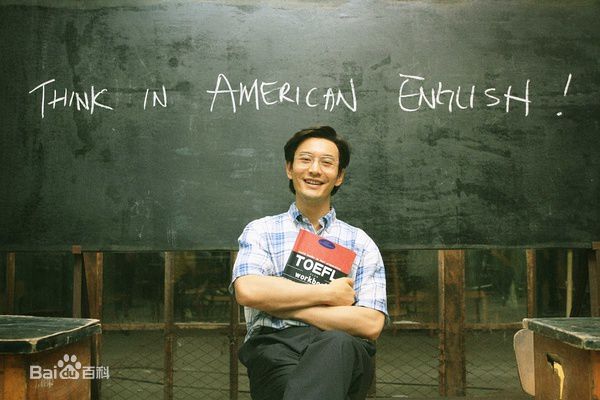 THINK IN AMERICAN ENGLISH !
TOEFL
workbook
Bai百科